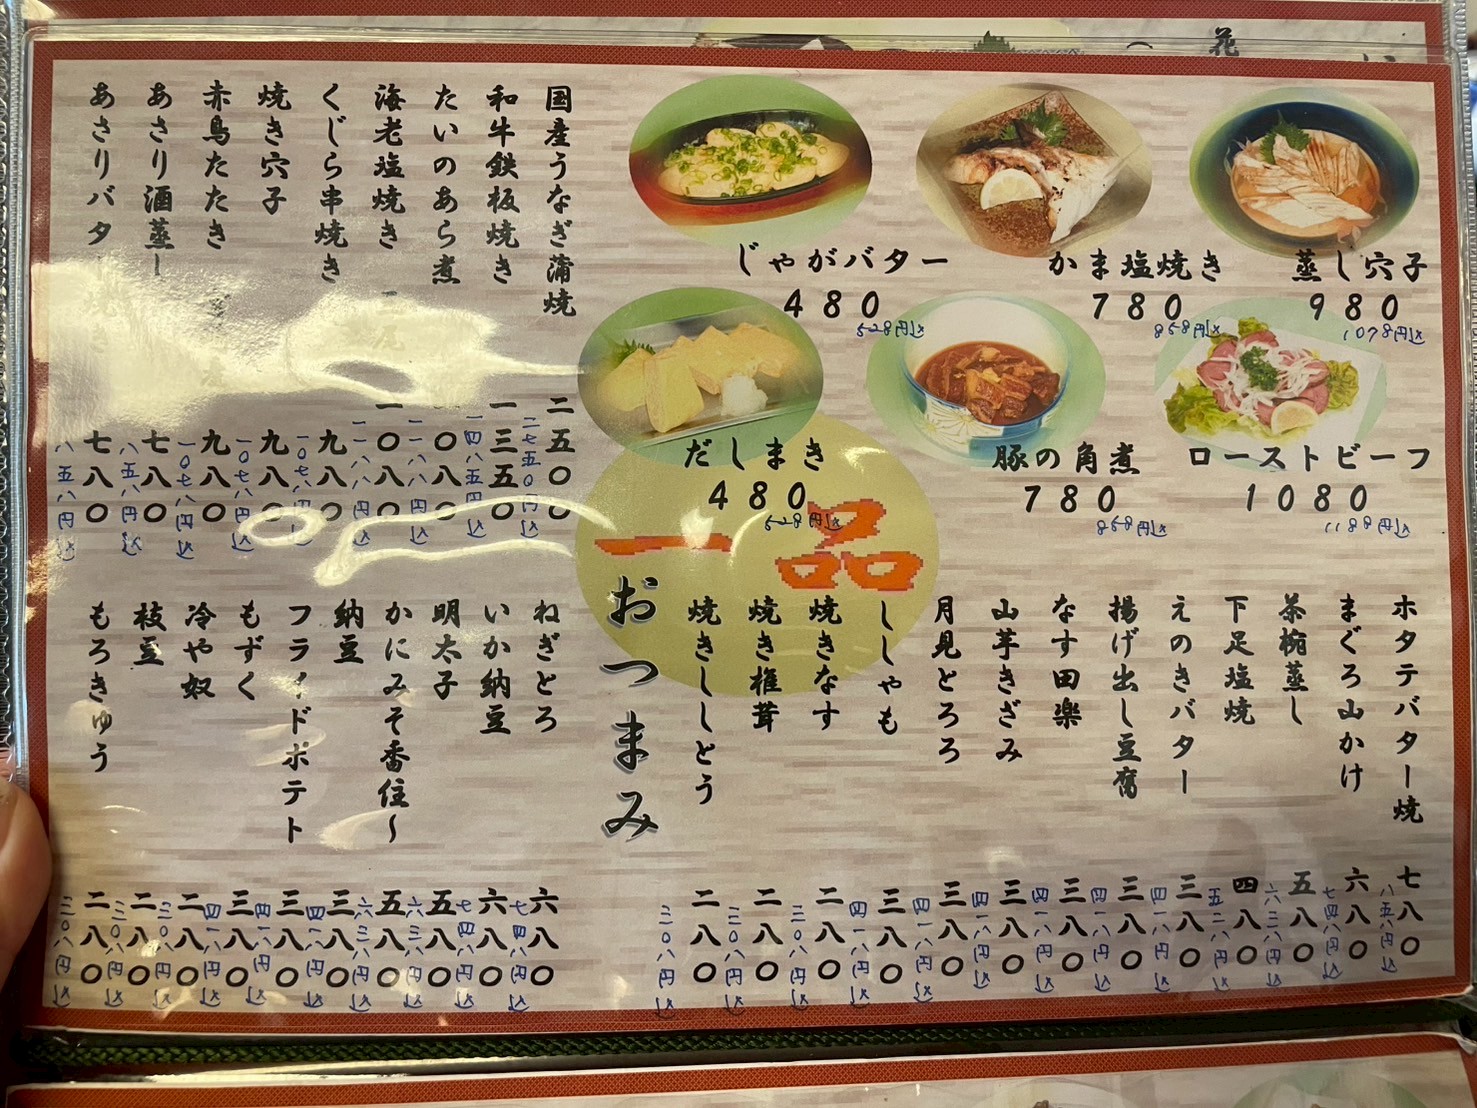 花
じゃがバター
480
528円込
かま塩焼き
780
858円込
蒸し穴子
980
1078円込
だしまき
480
528円込
豚の角煮
780
858円込
ローストビーフ
1080
1188円込
国産うなぎ蒲焼 二五〇〇
二七五〇円込
和牛鉄板焼き 一三五〇
一四八五円込
たいのあら煮 一〇八〇
一一八八円込
海老塩焼き 二尾 一〇八〇
一一八八円込
くじら串焼き 九八〇
一〇七八円込
焼き穴子 九八〇
一〇七八円込
赤鳥たたき 九八〇
一〇七八円込
あさり酒蒸し 七八〇
八五八円込
あさりバター焼き 七八〇
八五八円込
一品
おつまみ
ホタテバター焼 七八〇
八五八円込
まぐろ山かけ 六八〇
七四八円込
茶椀蒸し 五八〇
六三八円込
下足塩焼 四八〇
五二八円込
えのきバター 三八〇
四一八円込
揚げ出し豆腐 三八〇
四一八円込
なす田楽 三八〇
四一八円込
山芋きざみ 三八〇
四一八円込
月見とろろ 三八〇
四一八円込
ししゃも 三八〇
四一八円込
焼きなす 二八〇
三〇八円込
焼き椎茸 二八〇
三〇八円込
焼きししとう 二八〇
三〇八円込
ねぎとろ 六八〇
七四八円込
いか納豆 六八〇
七四八円込
明太子 五八〇
六三八円込
かにみそ香住〜 五八〇
六三八円込
納豆 三八〇
四一八円込
フライドポテト 三八〇
四一八円込
もずく 三八〇
四一八円込
冷や奴 二八〇
三〇八円込
枝豆 二八〇
三〇八円込
もろきゅう 二八〇
三〇八円込